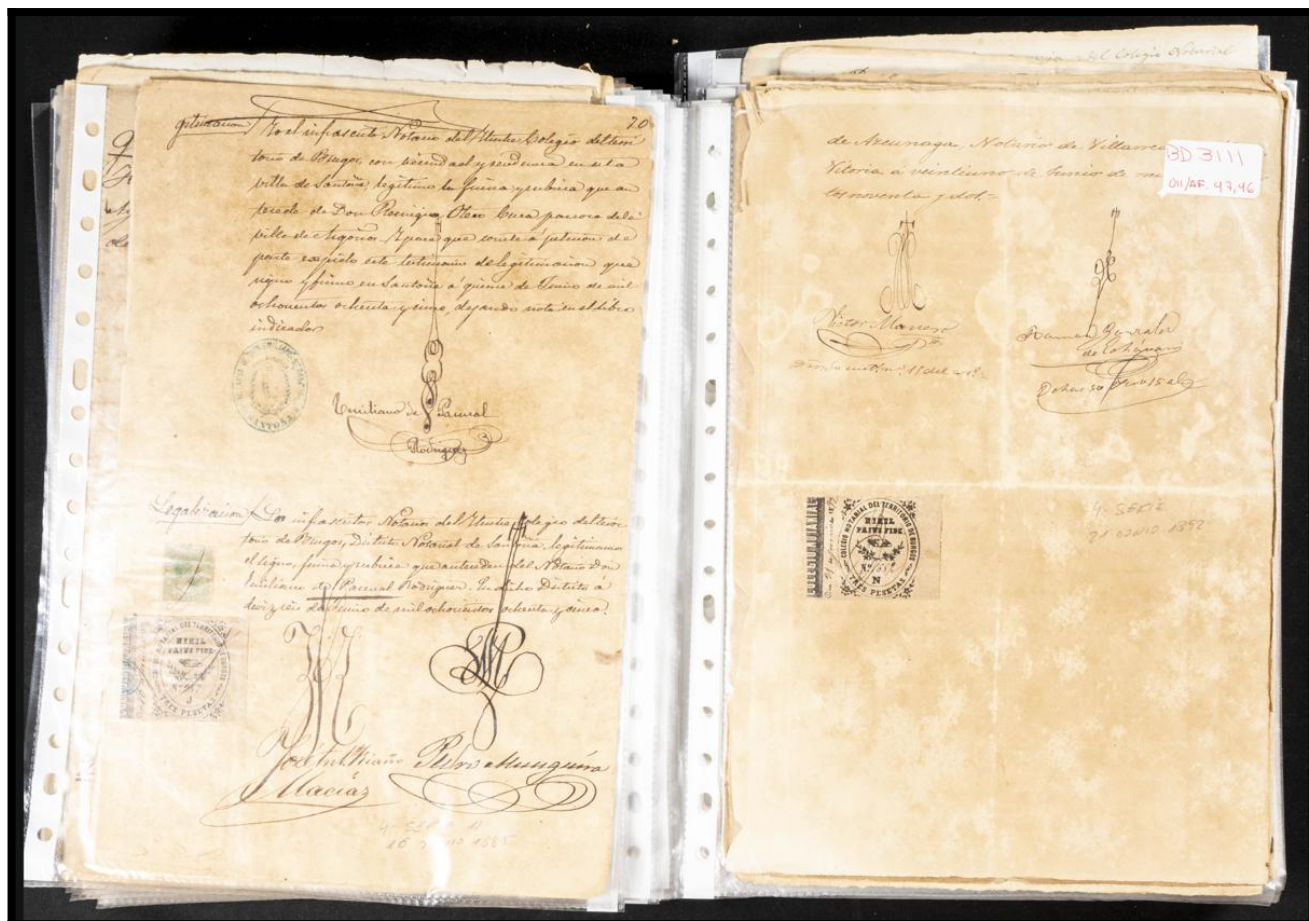 70
gitimacion Yo el infrascrito Notario del Ilustre Colegio del terri
torio de Burgos, con vecindad y residencia en esta
villa de Santoña, legitimo la firma y rubrica que an
tecede de Don Remigio Cura parroco de la
villa de Argoños. Y para que conste á peticion de
parte expido este testimonio de legitimacion que
signo y firmo en Santoña á quince de Junio de mil
ochocientos ochenta y cinco, dejando nota en el libro
indicador
SANTOÑA
Emiliano de Pascual
Rodriguez
Legalizacion Los infrascritos Notarios del Ilustre Colegio del terri
torio de Burgos, Distrito Notarial de Santoña, legalizamos
el signo, firma y rubrica que anteceden del Notario Don
Emiliano de Pascual Rodriguez. En dicho Distrito á
diez y seis de Junio de mil ochocientos ochenta y cinco.
NIHIL
PRIUS FIDE
TRES PESETAS
Macías
Pedro Munguira
16 JUNIO 1885
del Colegio Notarial
de Azcunaga, Notario de Villarreal
Vitoria a veintiuno de Junio de
tos noventa y dos.-
BD 3111
011/AF. 47,46
Victor Manero
Ramon Gonzalez
de Echavarri
COLEGIO NOTARIAL DEL TERRITORIO DE BURGOS
NIHIL
PRIUS FIDE
N
TRES PESETAS
4ª SERIE
21 JUNIO 1892